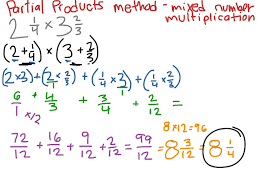 Partial Products method - mixed number multiplication
2 1/4 × 3 2/3
(2 + 1/4) × (3 + 2/3)
(2×3) + (2 × 2/3) + (1/4 × 3) + (1/4 × 2/3)
6/1 ×12 + 4/3 + 3/4 + 2/12 =
8×12=96
72/12 + 16/12 + 9/12 + 2/12 = 99/12 = 8 3/12 = 8 1/4